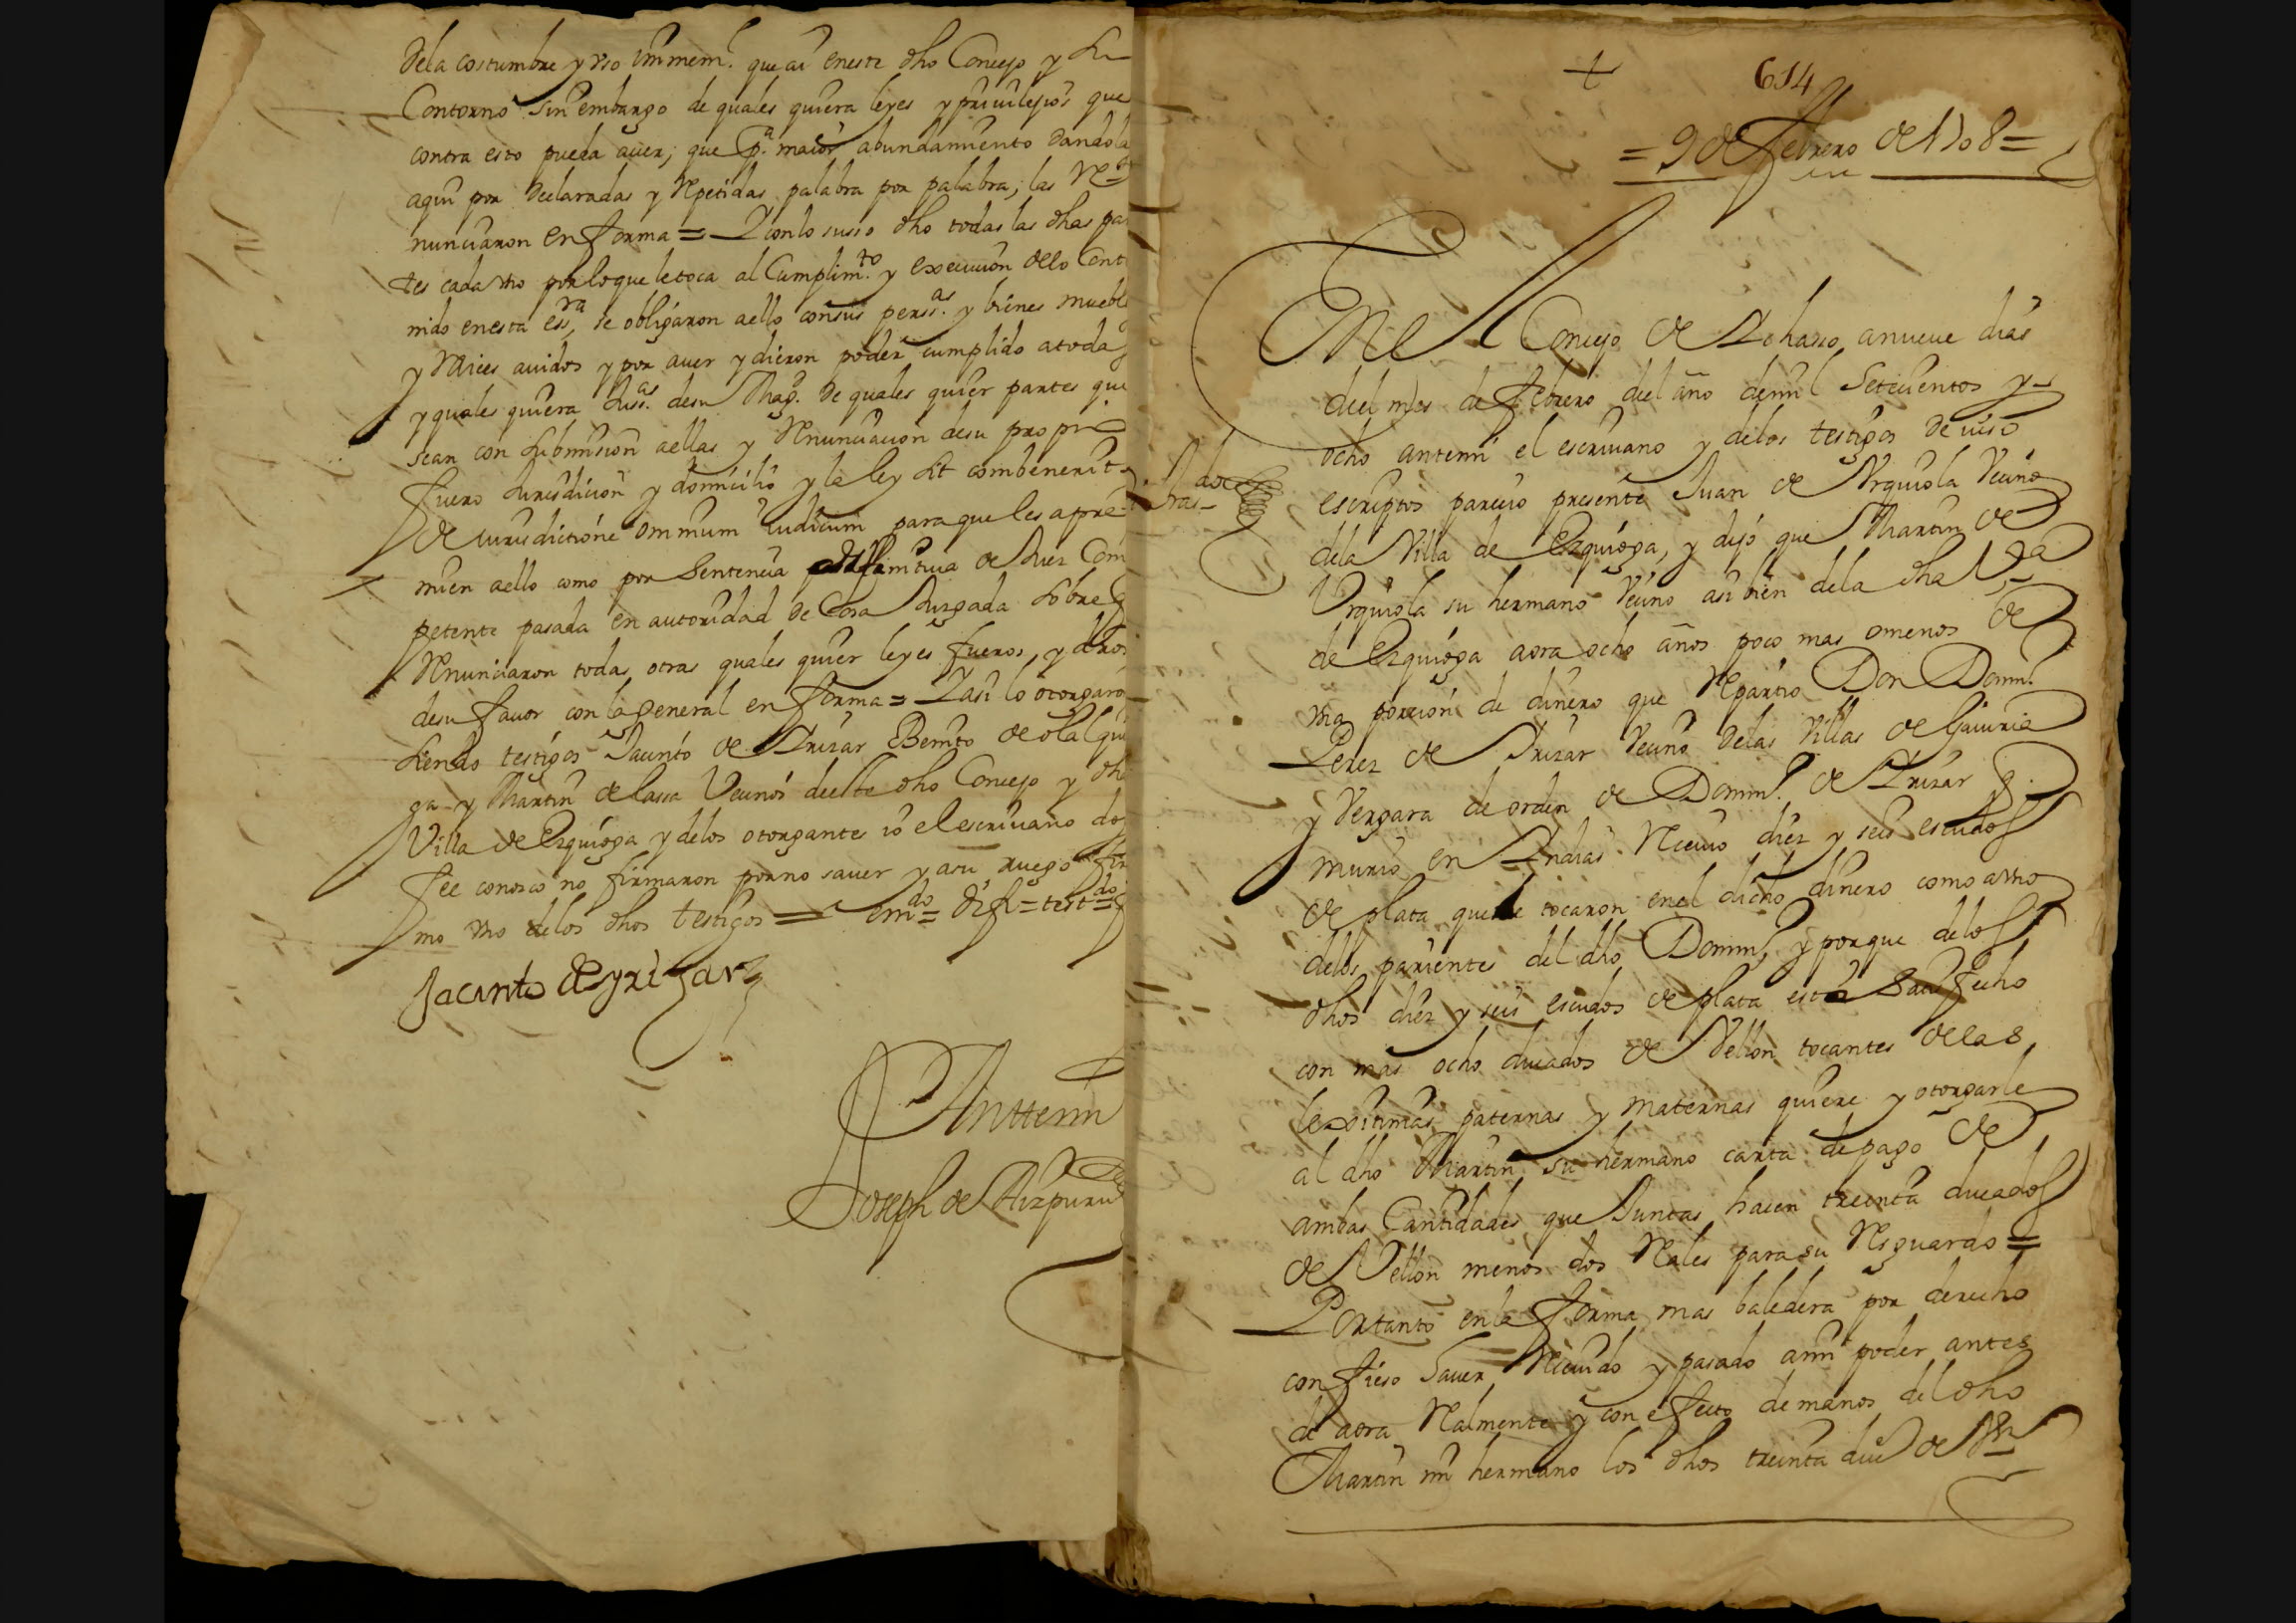 dela costumbre y vso ynmem.l que ai eneste dho Concejo y su
Contorno sin embargo de quales quiera leyes y priuilegios que
contra esto pueda auer, que p.a maior abundamiento dandola
aqui por declaradas y Repetidas palabra por palabra, las Re
nunciaron en forma = Y con lo suso dho todas las dhas par
tes cada vno por lo que le toca al Cumplim.to y execucion dello Conte
nido enesta ess.ra, se obligaron aello consus perss.as y bienes mueble
y Raices auidos y por auer y dieron poder cumplido atodas
y quales quiera Juss.as desu Mag.d de quales quier partes que
sean con submision aellas y Renunciacion desu propio
fuero Jurisdicion y domicilio y la ley sit combenerit
de iurisdictione omnium iudicum para que les apre
mien aello como por sentencia difinitiua de Juez Com
petente pasada en autoridad de Cosa Juzgada sobre q
Renunciaron todas otras quales quier leyes fueros, y dros
desu fauor con la general en forma = Y asi lo otorgaron
siendo testigos Jacinto de Yrizar Benito de olalqui
ga y Martin de lassa Vecinos deeste dho Concejo y dha
Villa de Ezquioga y delos otorgantes io el escriuano doy
fee conosco no firmaron por no sauer y asu ruego fir
mo vno delos dhos testigos = em.do = difi = test.do =
Jacinto de yrizar
Anttemi
Joseph de Aizpuru
+ 614
= 9 de Febrero de 1708 =
En el Concejo de Ychaso anueue dias
deel mes de febrero del año demil Setecientos y
ocho antemi el escriuano y delos testigos de iuso
escriptos parecio presente Juan de Vrquiola Vecino
dela Villa de Ezquioga, y dijo que Martin de
Vrquiola su hermano Vecino asi bien dela dha V.a
de Ezquioga aora ocho años poco mas omenos de
vna porcion de dinero que Repartio Don Domin.o
Perez de Yrizar Vecino delas Villas de Gauiria
y Vergara de orden de Domin.o de Yrizar q.
murio en Yndias Recivio diez y seis escudos
de plata que le tocaron enel dicho dinero como avno
delos parientes del dho Domin.o, y porque delos
dhos diez y seis escudos de plata esta Satisfecho
con mas ocho ducados de Vellon tocantes delas
lexitimas paternas y maternas quiere y otorgarle
al dho Martin su hermano carta depago de
ambas Cantidades que Juntas hacen treinta ducados
de Vellon menos dos Reales para su Resguardo =
Por tanto enla forma mas baledera por derecho
confieso hauer Recivido y pasado ami poder antes
de aora Realmente y con efecto demanos del dho
Martin mi hermano los dhos treinta du.s de Vn